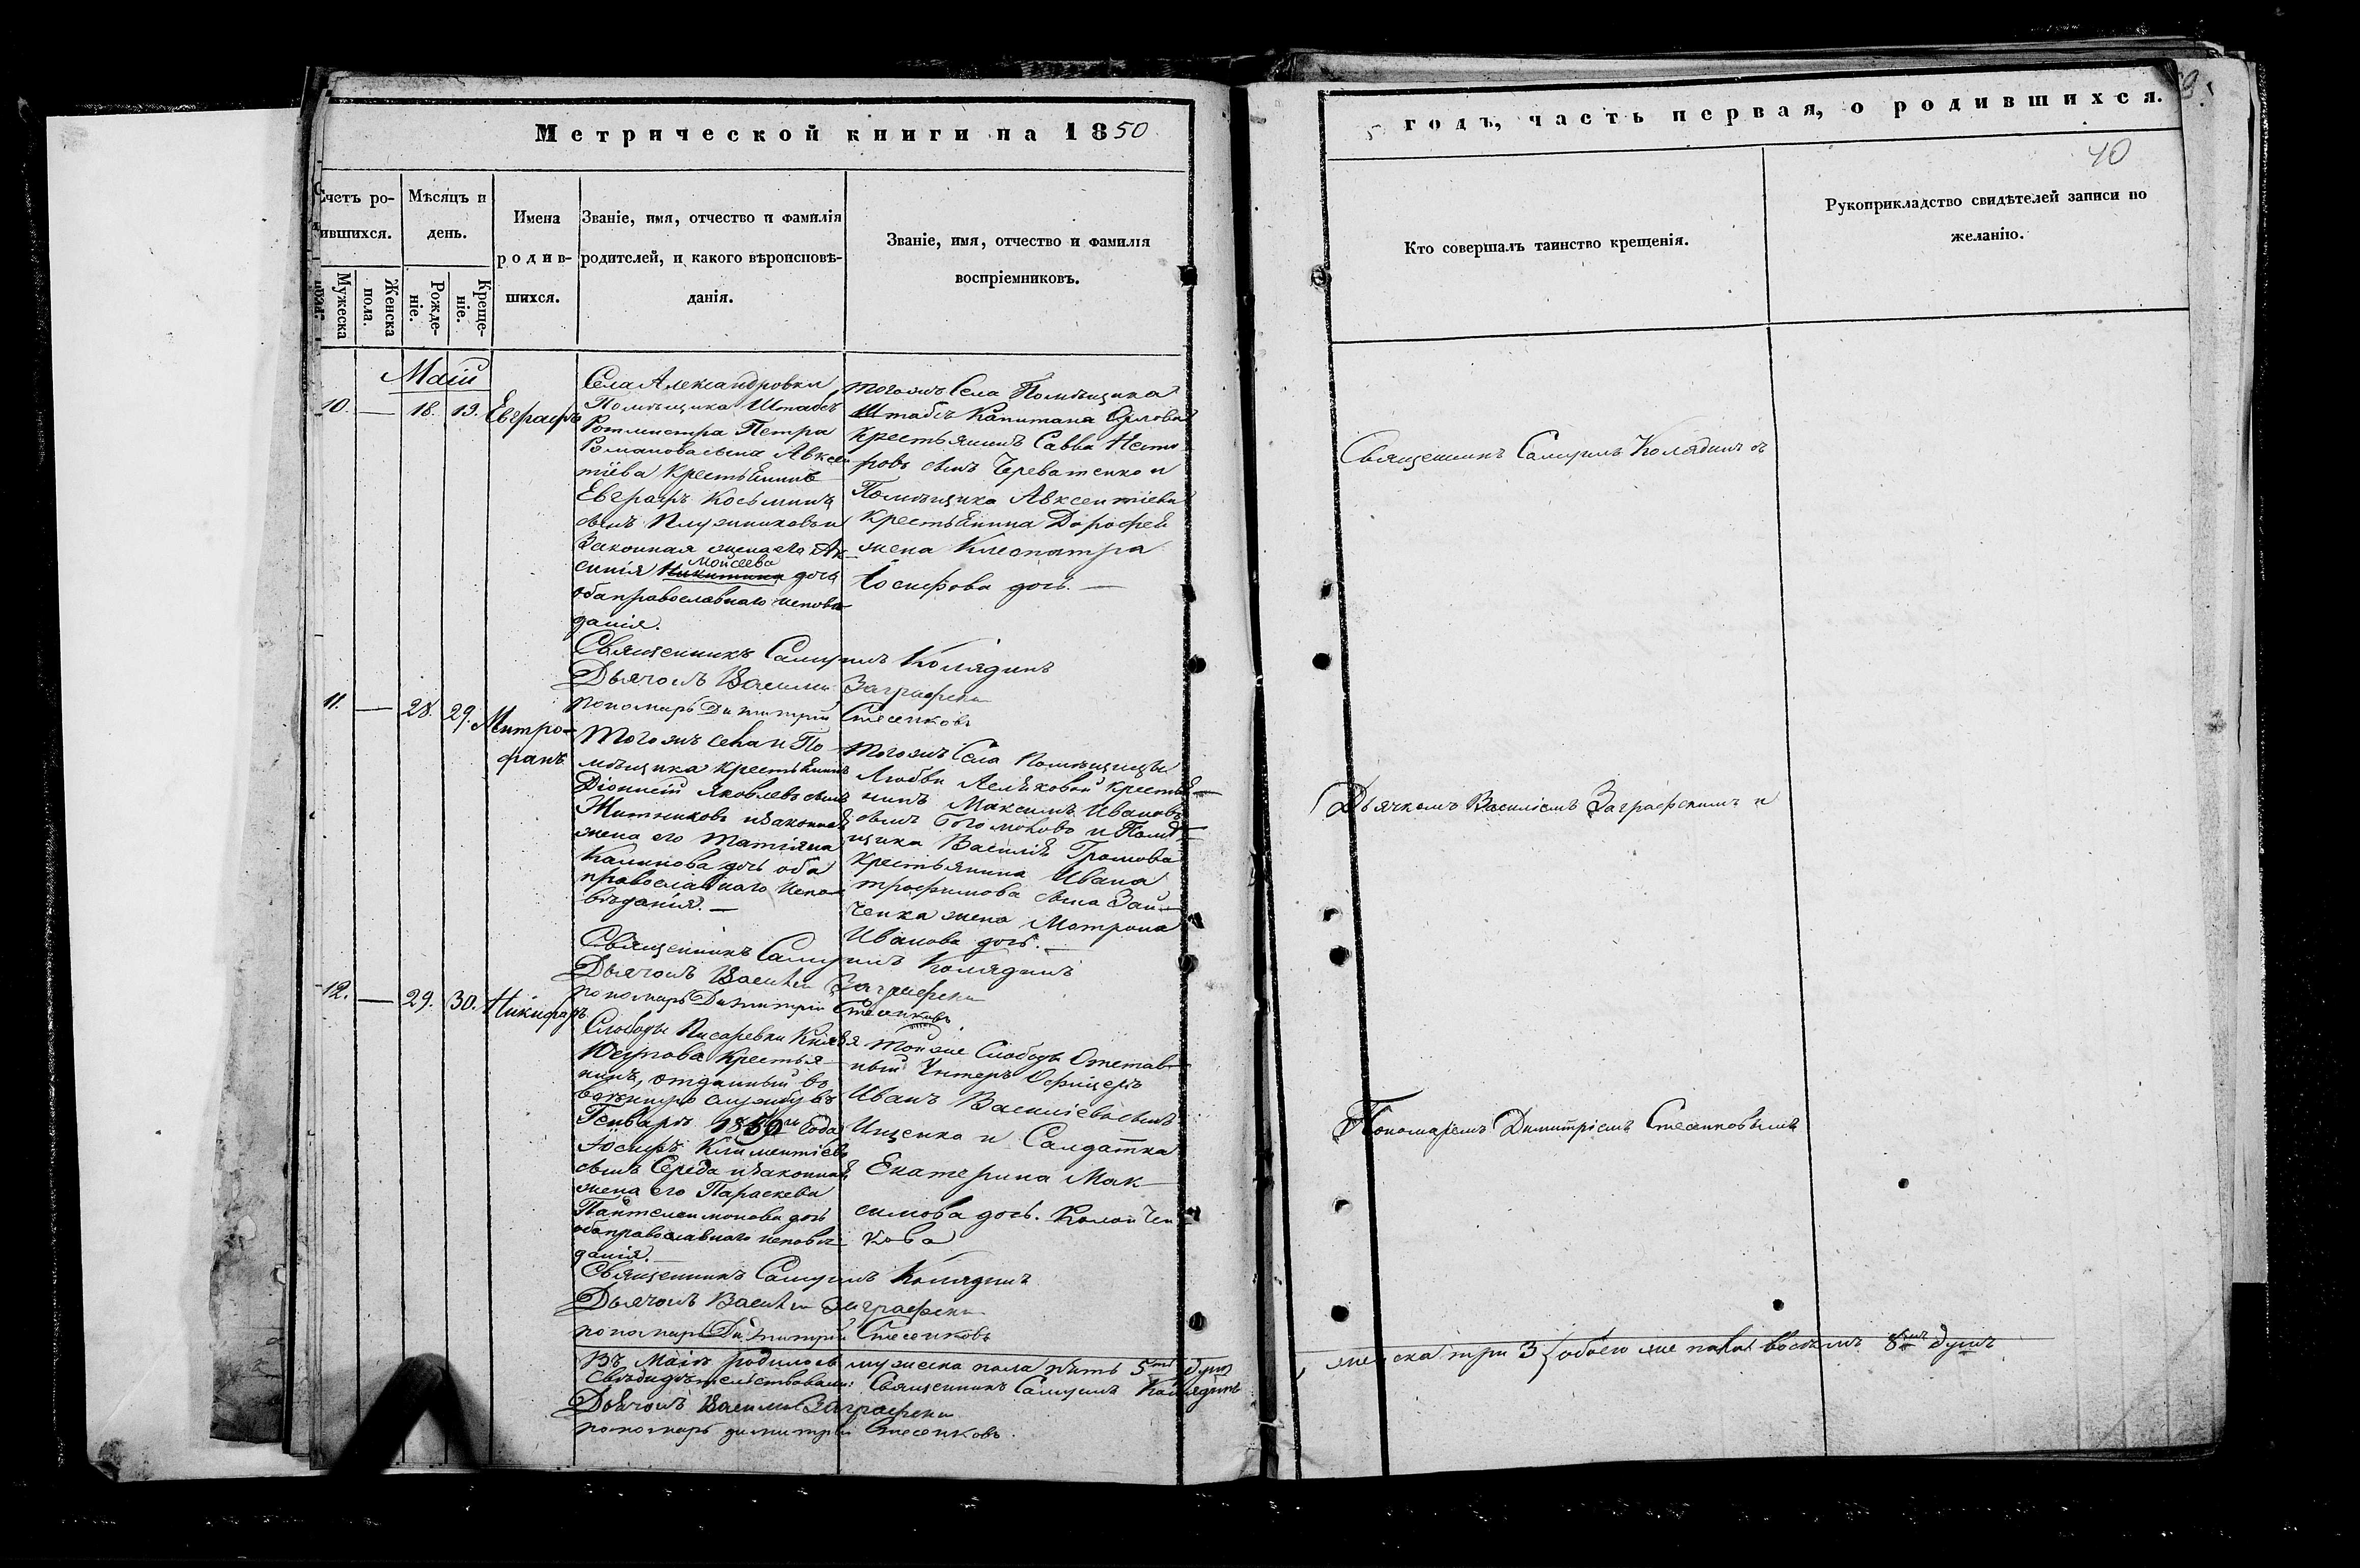 Метрической книги на 1850
годъ, часть первая, о родившихся.
40
Счетъ ро-
дившихся.
Мужеска
пола.
Женска
пола.
Мѣсяцъ и
день.
Рожде-
ніе.
Креще-
ніе.
Имена
родив-
шихся.
Званіе, имя, отчество и фамилія
родителей, и какого вѣроисповѣ-
данія.
Званіе, имя, отчество и фамилія
воспріемниковъ.
Кто совершалъ таинство крещенія.
Рукоприкладство свидѣтелей записи по
желанію.
Маій
10. — 18. 19. Евграфъ
Села Александровки
Помѣщика Штабсъ
Ротмистра Петра
Романова сына Авксен
тіева крестьянинъ
Евграфъ Косьминъ
сынъ Плужниковъ и
Законная жена его Ак-
синія Моисеева дочь
оба православнаго исповѣ
данія.
тогожъ Села Помѣщика
Штабсъ Капитана Орлова
крестьянинъ Савва Несто
ровъ сынъ Череватенко и
Помѣщика Авксентіева
крестьянина Дорофея
жена Клеопатра
Іосифова дочь. —
Священникъ Самуилъ Колядинъ
Дьячокъ Василій Заграфскій
пономарь Димитрій Стесенковъ
Священникъ Самуилъ Колядинъ съ
11. — 28. 29. Митро-
фанъ
Тогожъ села и По
мѣщика крестьянинъ
Діонисій Яковлевъ сынъ
Житниковъ и законная
жена его Татіяна
Калинова дочь оба
православнаго испо-
вѣданія. —
Тогожъ Села Помѣщицы
Любви крестья-
нинъ Максимъ Ивановъ
сынъ Богомолово и Помѣ-
щика Василія Громова
крестьянина Ивана
трофимова сына Зай-
ченка жена Матрона
Иванова дочь. —
Священникъ Самуилъ Колядинъ
Дьячокъ Василій Заграфскій
пономарь Димитрій Стесенковъ
Дьячкомъ Василіемъ Заграфскимъ и
12. — 29. 30. Никифоръ
Слободы Писаревки Князя
Юсупова крестья-
нинъ, отданный во
военную службу въ
Генварѣ 1850 года
Іосифъ Климентіевъ
сынъ Середа и законная
жена его Параскева
Пантелеимонова дочь
оба православнаго исповѣ
данія.
Той же Слободы Отстав-
ный Унтеръ Офицеръ
Иванъ Василіевъ сынъ
Ищенко и Салдатка
Екатерина Мак-
симова дочь. Коломчен
кова
Священникъ Самуилъ Колядинъ
Дьячокъ Василій Заграфскій
пономарь Димитрій Стесенковъ
Пономаремъ Димитріемъ Стесенковымъ
Въ Маіѣ родилось мужеска пола пять 5ть душъ
женска три 3 обоего же пола восемь 8мь душъ
Свѣдѣтельствовали: Священникъ Самуилъ Колядинъ
Дьячокъ Василій Заграфскій
пономарь димитрій Стесенковъ.